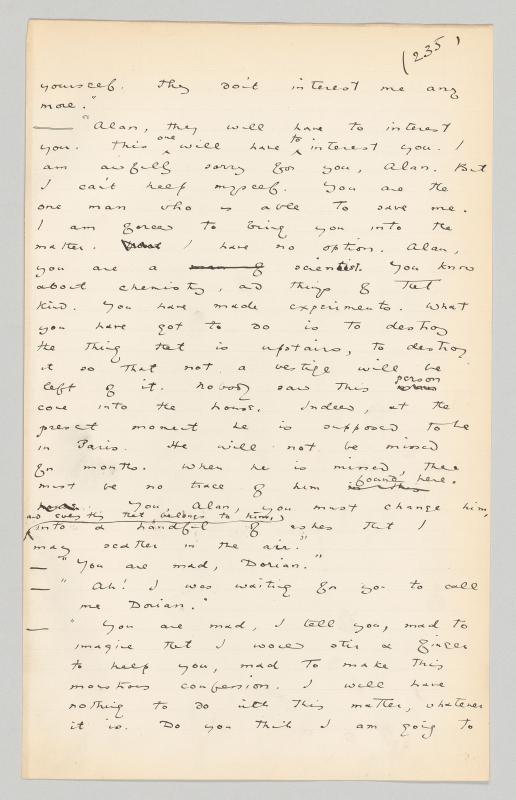 (235)
yourself. They don't interest me any
more."
"Alan, they will have to interest
you. This one will have to interest you. I
am awfully sorry for you, Alan. But
I can't help myself. You are the
one man who is able to save me.
I am forced to bring you into the
matter. I have no option. Alan,
you are a man of scientist. You know
about chemistry, and things of that
kind. You have made experiments. What
you have got to do is to destroy
the thing that is upstairs, to destroy
it so that not a vestige will be
left of it. Nobody saw this person
come into the house. Indeed, at the
present moment he is supposed to be
in Paris. He will not be missed
for months. When he is missed, there
must be no trace of him found here.
You, Alan, you must change him,
and everything that belongs to him,
into a handful of ashes that I
may scatter in the air."
"You are mad, Dorian."
"Ah! I was waiting for you to call
me Dorian."
"You are mad, I tell you, mad to
imagine that I would stir a finger
to help you, mad to make this
monstrous confession. I will have
nothing to do with this matter, whatever
it is. Do you think I am going to